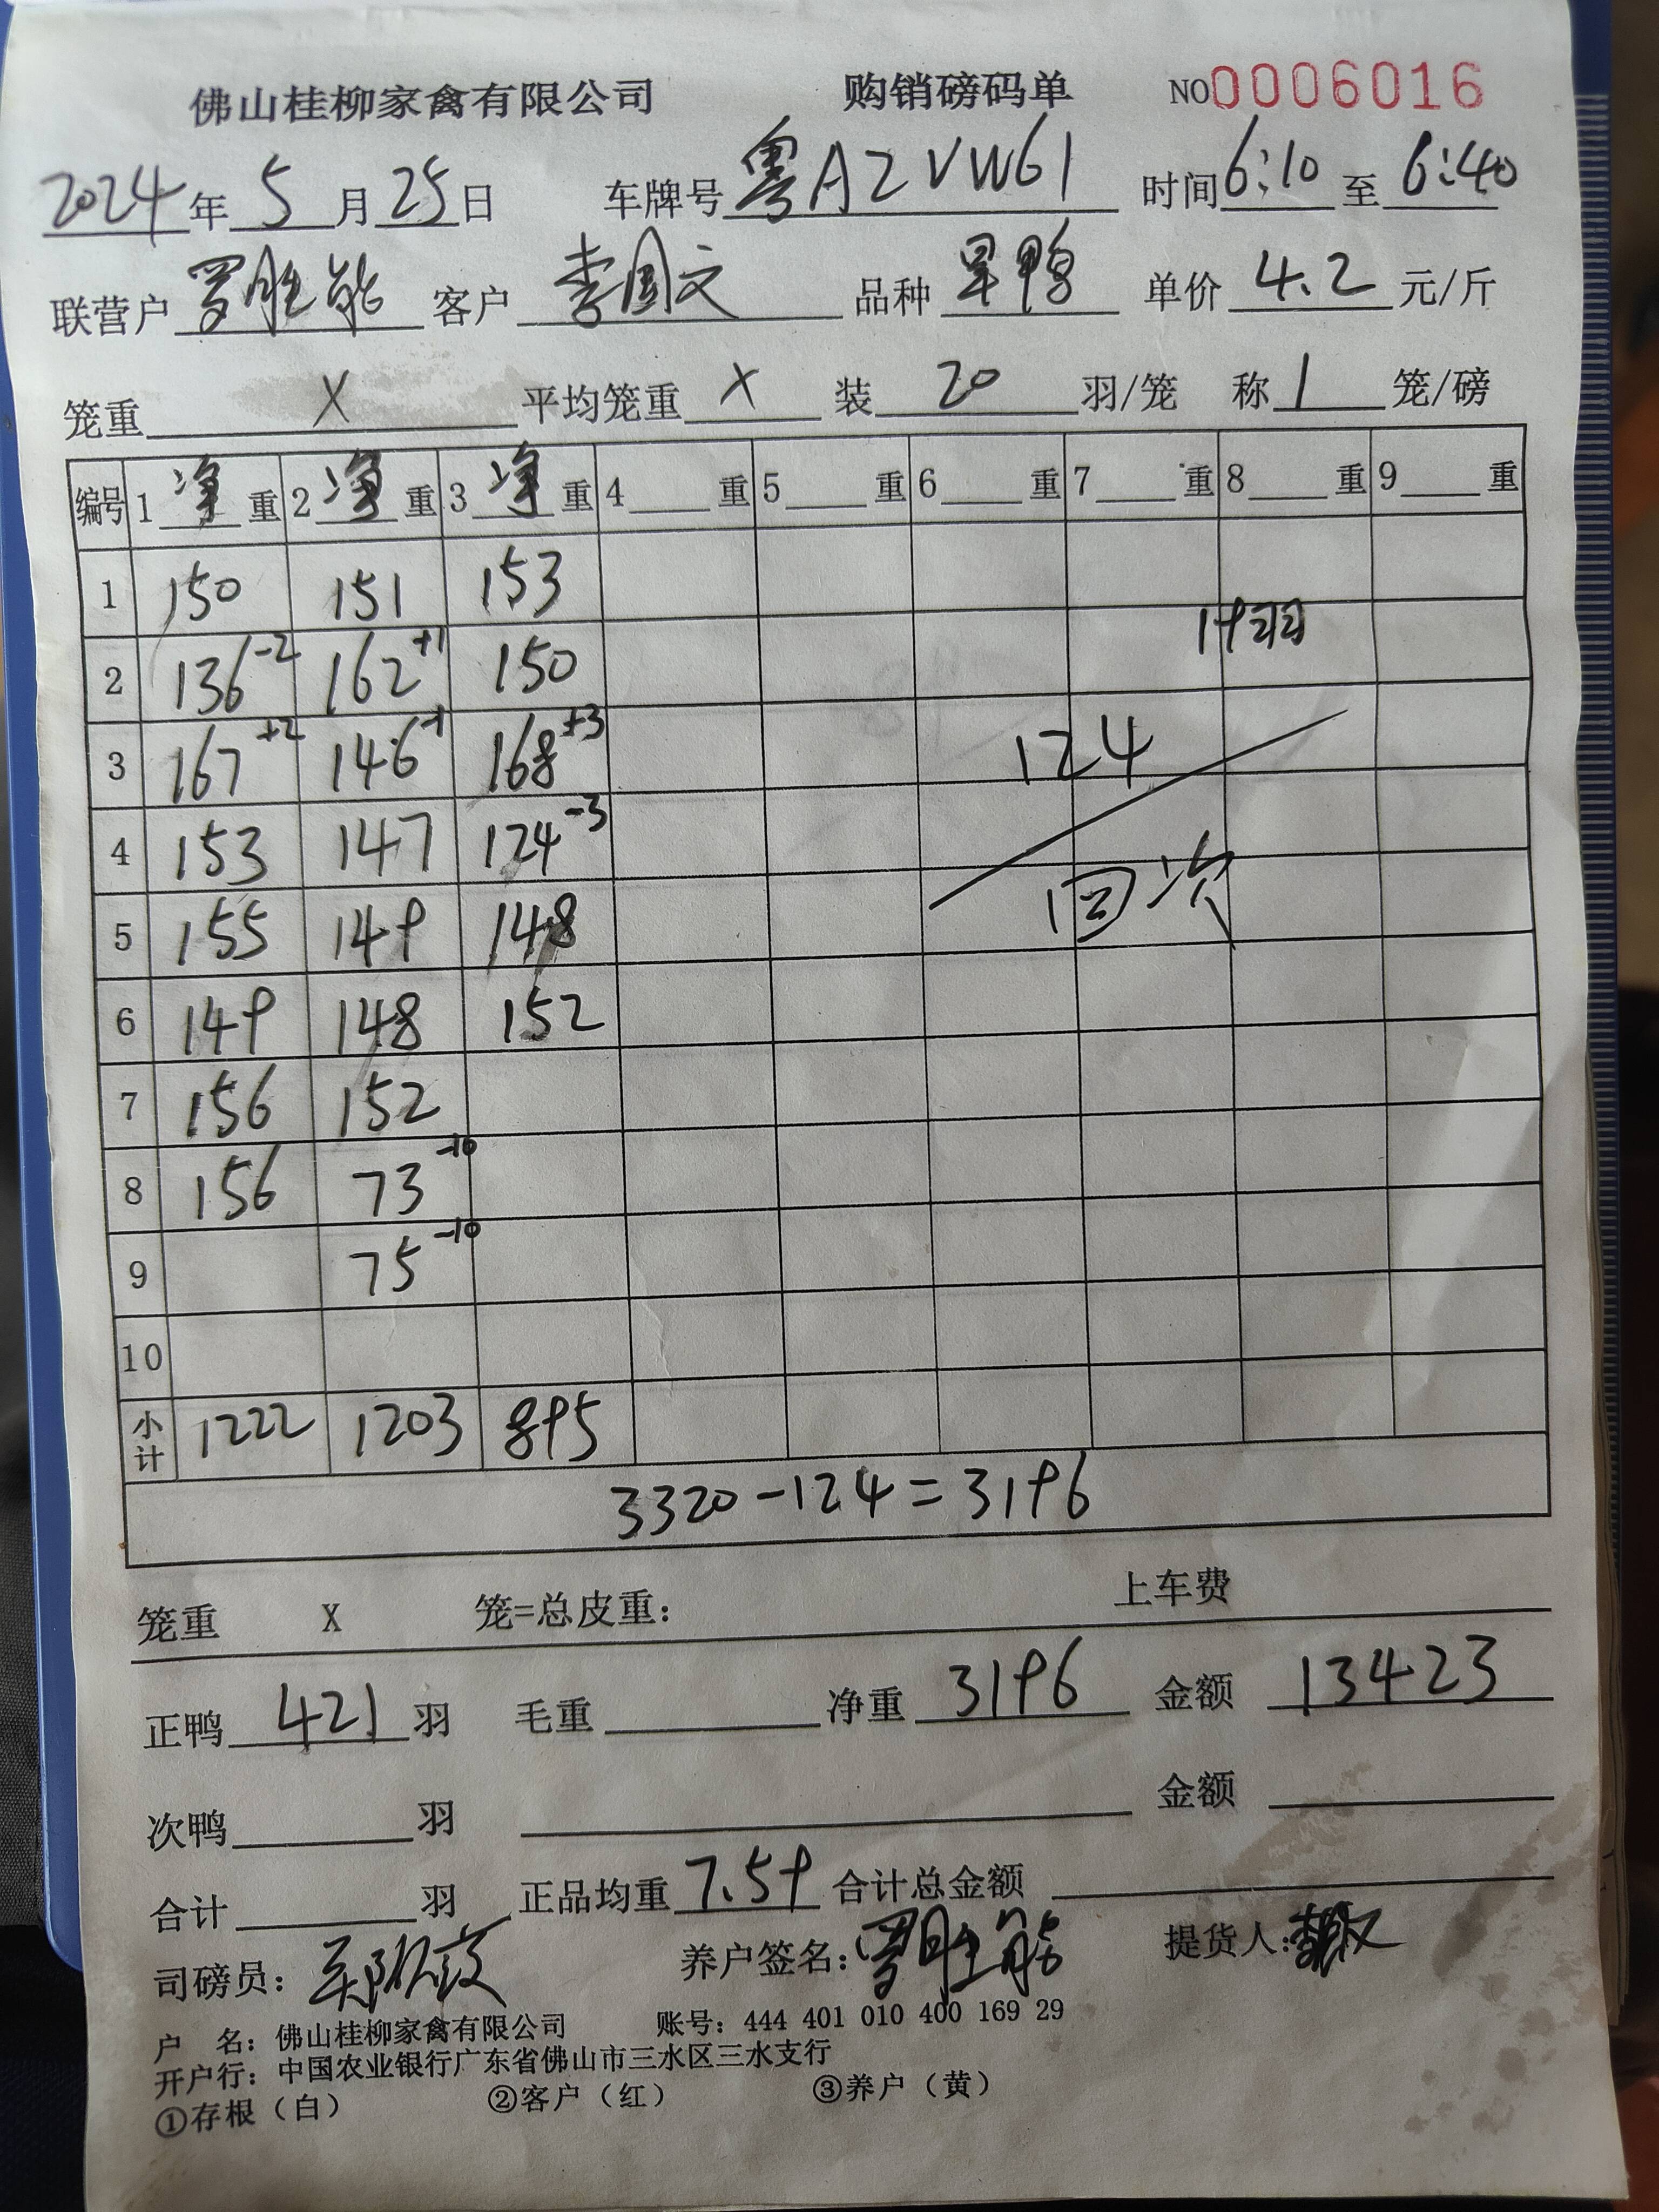 佛山桂柳家禽有限公司 购销磅码单 NO0006016
2024年 5 月 25 日 车牌号 粤A2VW61 时间 6:10 至 6:40
联营户 罗胜能 客户 李国文 品种 旱鸭 单价 4.2 元/斤
笼重 X 平均笼重 X 装 20 羽/笼 称 1 笼/磅
编号 1 净 重 2 净 重 3 净 重 4 重 5 重 6 重 7 重 8 重 9 重
1 150 151 153
2 136-2 162+1 150 19羽
3 167+2 146-1 168+3 124
4 153 147 124-3
5 155 149 148 回次
6 149 148 152
7 156 152
8 156 73-10
9 75-10
10
小计 1222 1203 895
3320-124=3196
笼重 X 笼=总皮重: 上车费
正鸭 421 羽 毛重 净重 3196 金额 13423
次鸭 羽 金额
合计 羽 正品均重 7.59 合计总金额
司磅员: 养户签名: 罗胜能 提货人:
户 名: 佛山桂柳家禽有限公司 账号: 444 401 010 400 169 29
开户行: 中国农业银行广东省佛山市三水区三水支行
①存根（白） ②客户（红） ③养户（黄）